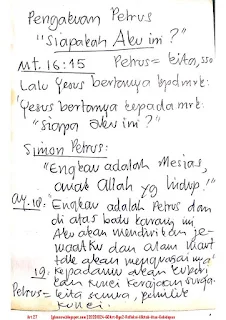 Pengakuan Petrus
"Siapakah Aku ini?"
Mt. 16:15 Petrus = kita, sso
Lalu Yesus bertanya kpd mrk:
"Yesus bertanya kepada mrk:
"Siapa aku ini?"
Simon Petrus:
"Engkau adalah Mesias,
anak Allah yg hidup!"
ay. 18: "Engkau adalah Petrus dan
di atas batu karang ini
Aku akan mendirikan je-
maatKu dan alam maut
tdk akan menguasainya"
19: Kepadamu akan Kuberi-
kan kunci kerajaan surga.
Petrus = kita semua, pemilik
kunci.